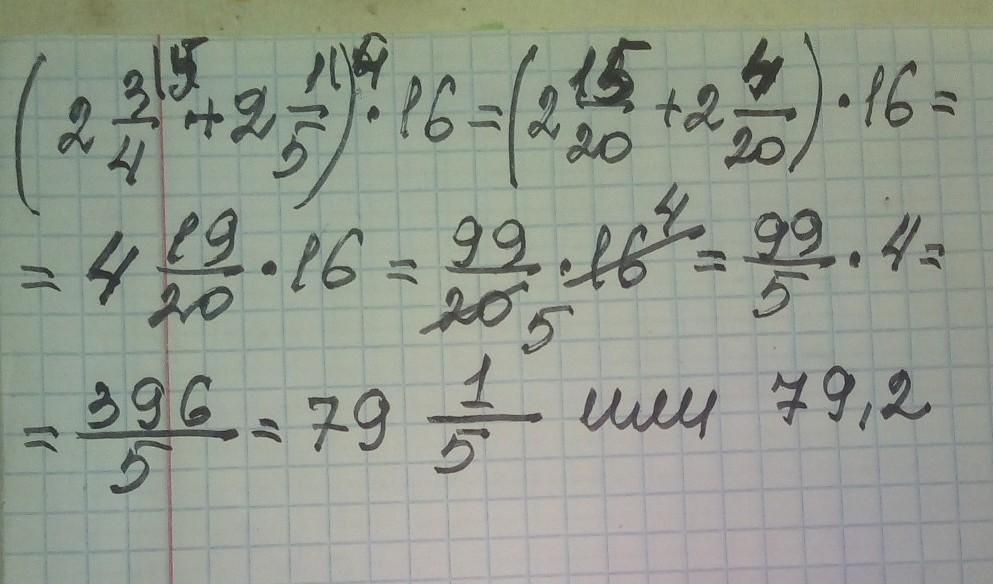 (2 3/4 |5 + 2 1/5 |4) · 16 = (2 15/20 + 2 4/20) · 16 =
= 4 19/20 · 16 = 99/20 5 · 16 4 = 99/5 · 4 =
= 396/5 = 79 1/5 или 79,2